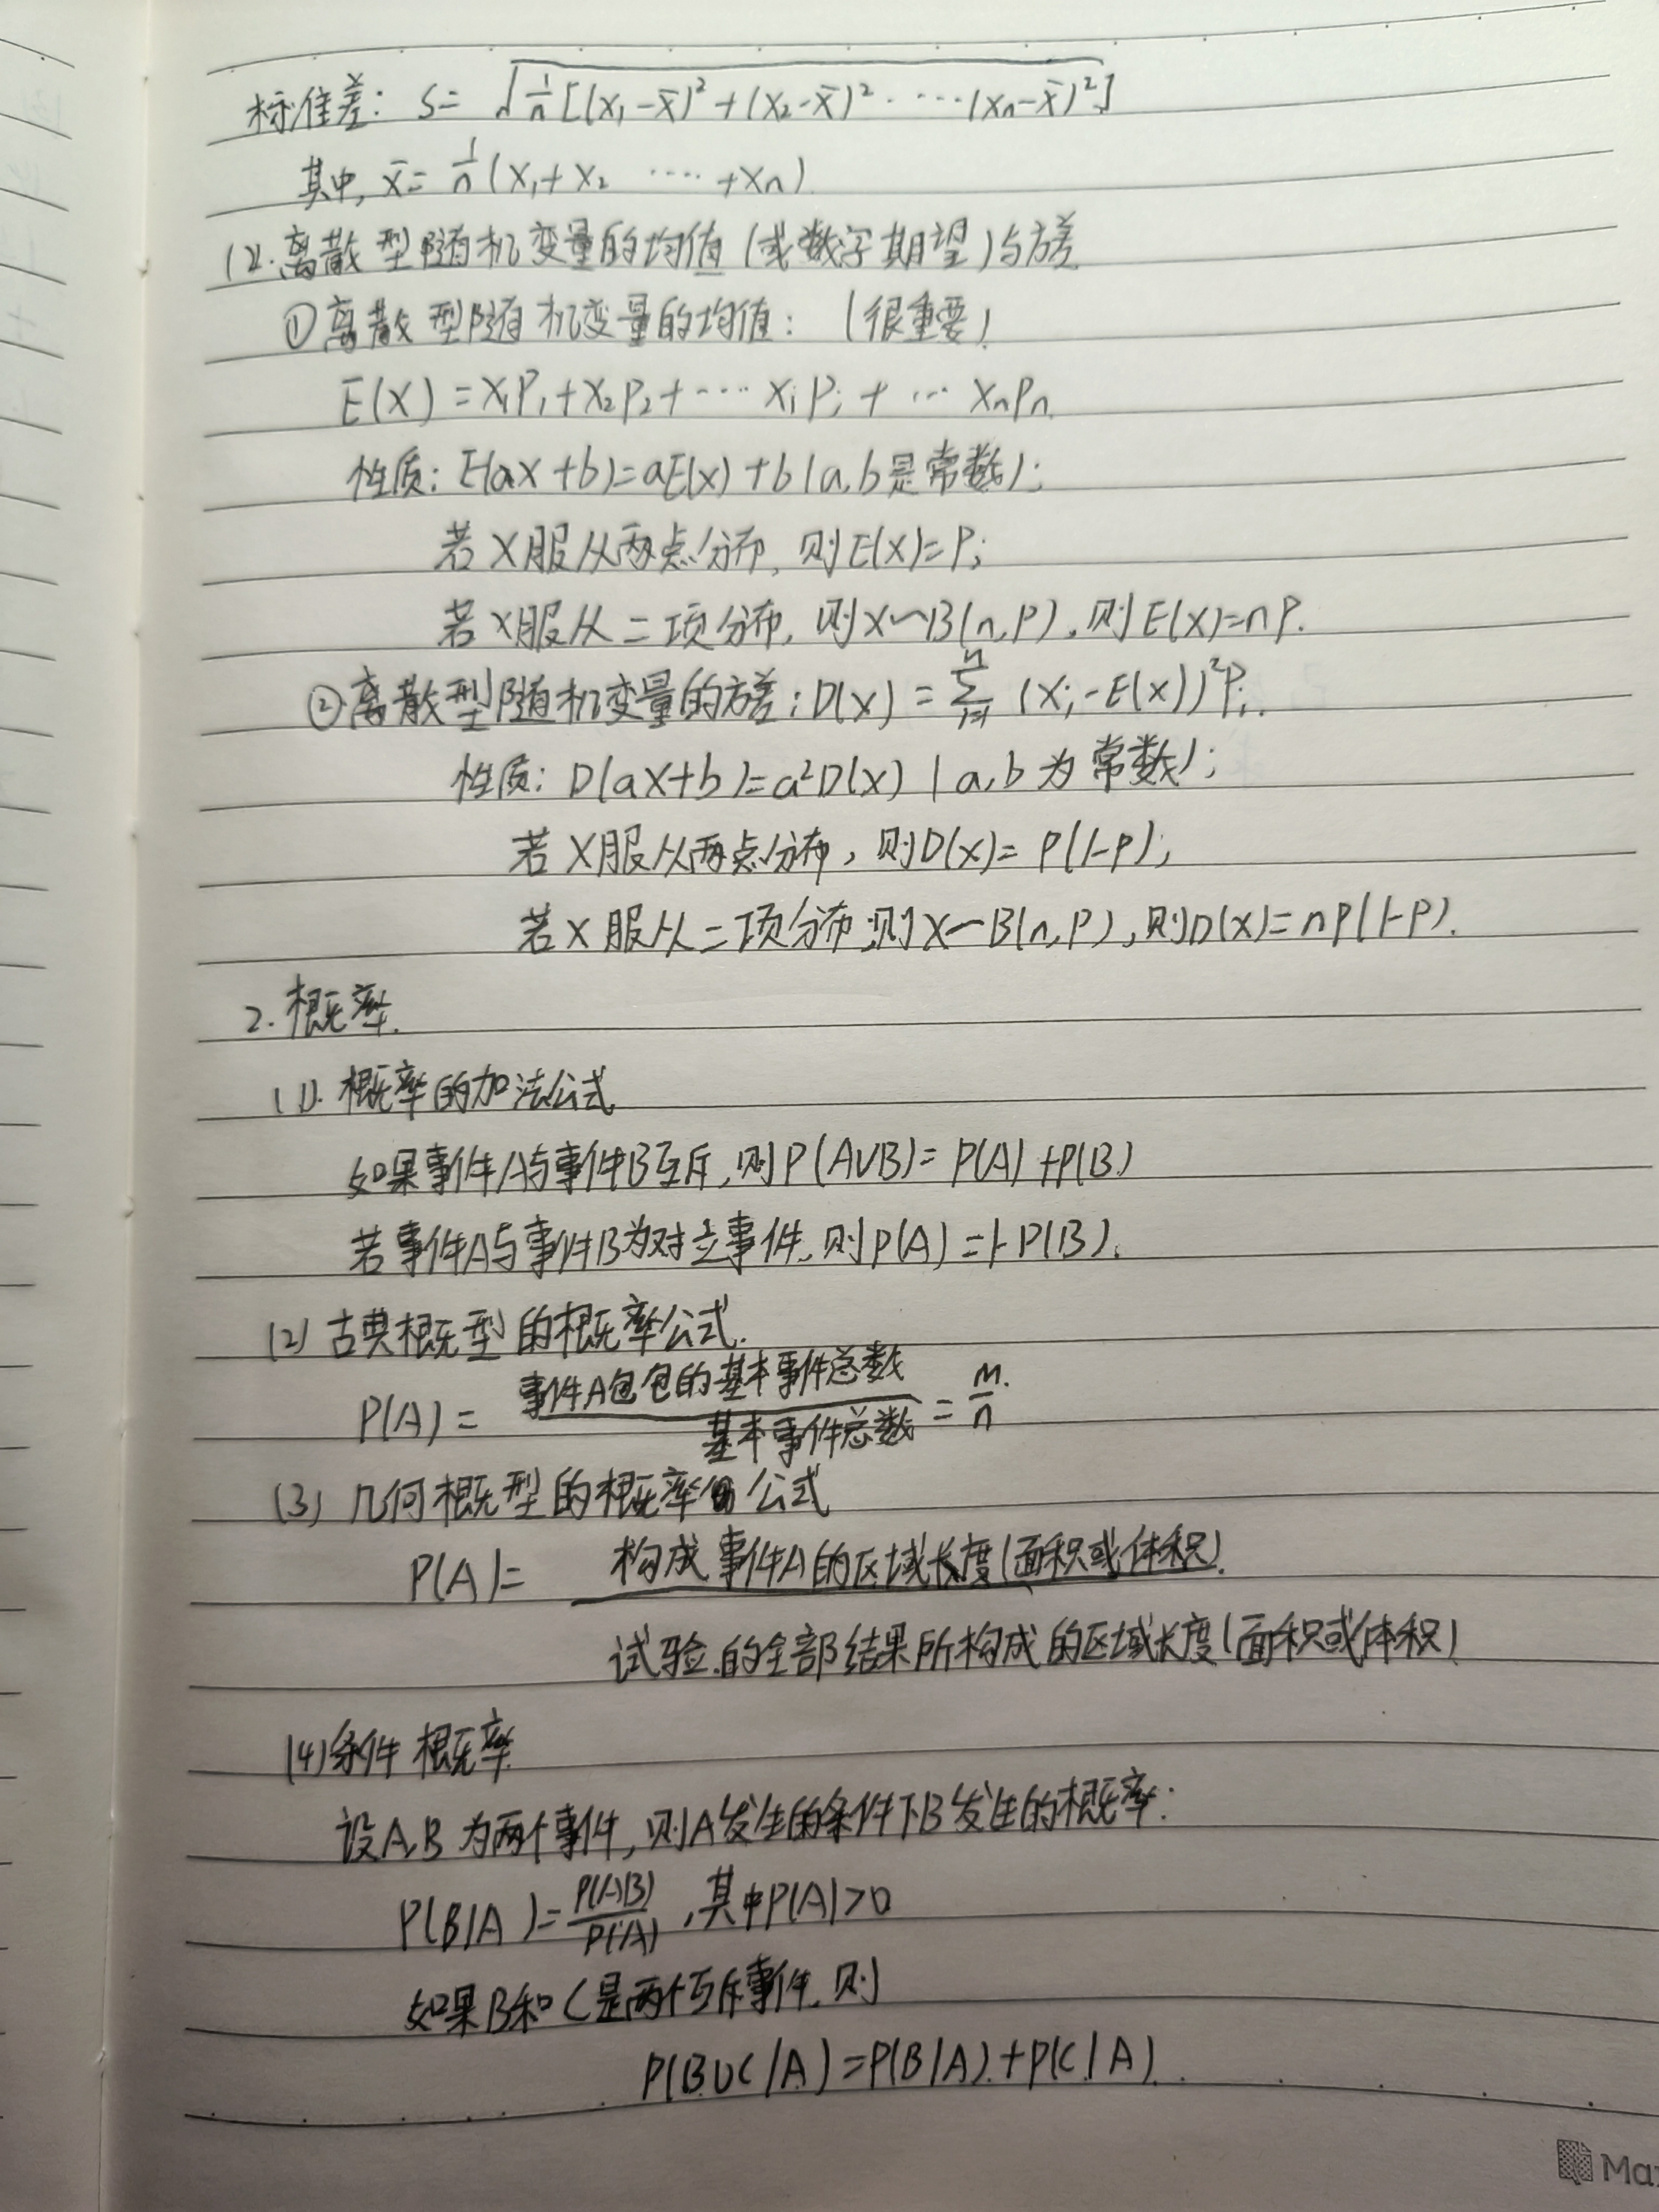 标准差: S = √1/n[(x₁-x̄)²+(x₂-x̄)²·····(xn-x̄)²]
其中, x̄ = 1/n(x₁+x₂ ····+xn)
(2).离散型随机变量的均值(或数字期望)与方差
①离散型随机变量的均值: (很重要)
E(X)=x₁P₁+x₂P₂+···xᵢPᵢ+···xnPn
性质: E(aX+b)=aE(x)+b(a,b是常数);
若X服从两点分布, 则E(X)=P;
若X服从二项分布, 则X~B(n,P), 则E(X)=nP.
②离散型随机变量的方差: D(X)=∑ⁿᵢ₌₁(xᵢ-E(x))²Pᵢ.
性质: D(aX+b)=a²D(X) (a,b为常数);
若X服从两点分布, 则D(X)=P(1-P);
若X服从二项分布,则X~B(n,P), 则D(X)=nP(1-P).
2.概率.
(1). 概率的加法公式
如果事件A与事件B互斥, 则P(A∪B)=P(A)+P(B)
若事件A与事件B为对立事件, 则P(A)=1-P(B).
(2)古典概型的概率公式.
P(A)= 事件A包包的基本事件总数/基本事件总数 = m/n.
(3) 几何概型的概率 公式
P(A)= 构成事件A的区域长度(面积或体积).
试验的全部结果所构成的区域长度(面积或体积)
(4)条件概率
设A,B为两个事件, 则A发生的条件下B发生的概率:
P(B|A)=P(AB)/P(A), 其中P(A)>0
如果B和C是两个互斥事件, 则
P(B∪C|A)=P(B|A)+P(C|A).